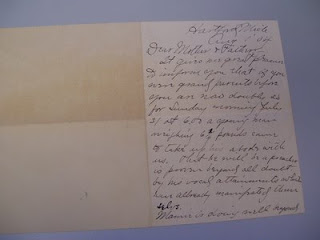 Hartford
Aug 1 - 94
Dear Mother & Father
It gives me great pleasure
to inform you that if you
ever grand parents before
you are now doubly so
for Sunday morning July
31 at 6.05 a young
weighing 6½ pounds came
to take up his abode with
us. That he will be a preacher
is proven beyond all doubt
by the vocal attainments which
have already manifested them
selves.
Mamie is doing well beyond